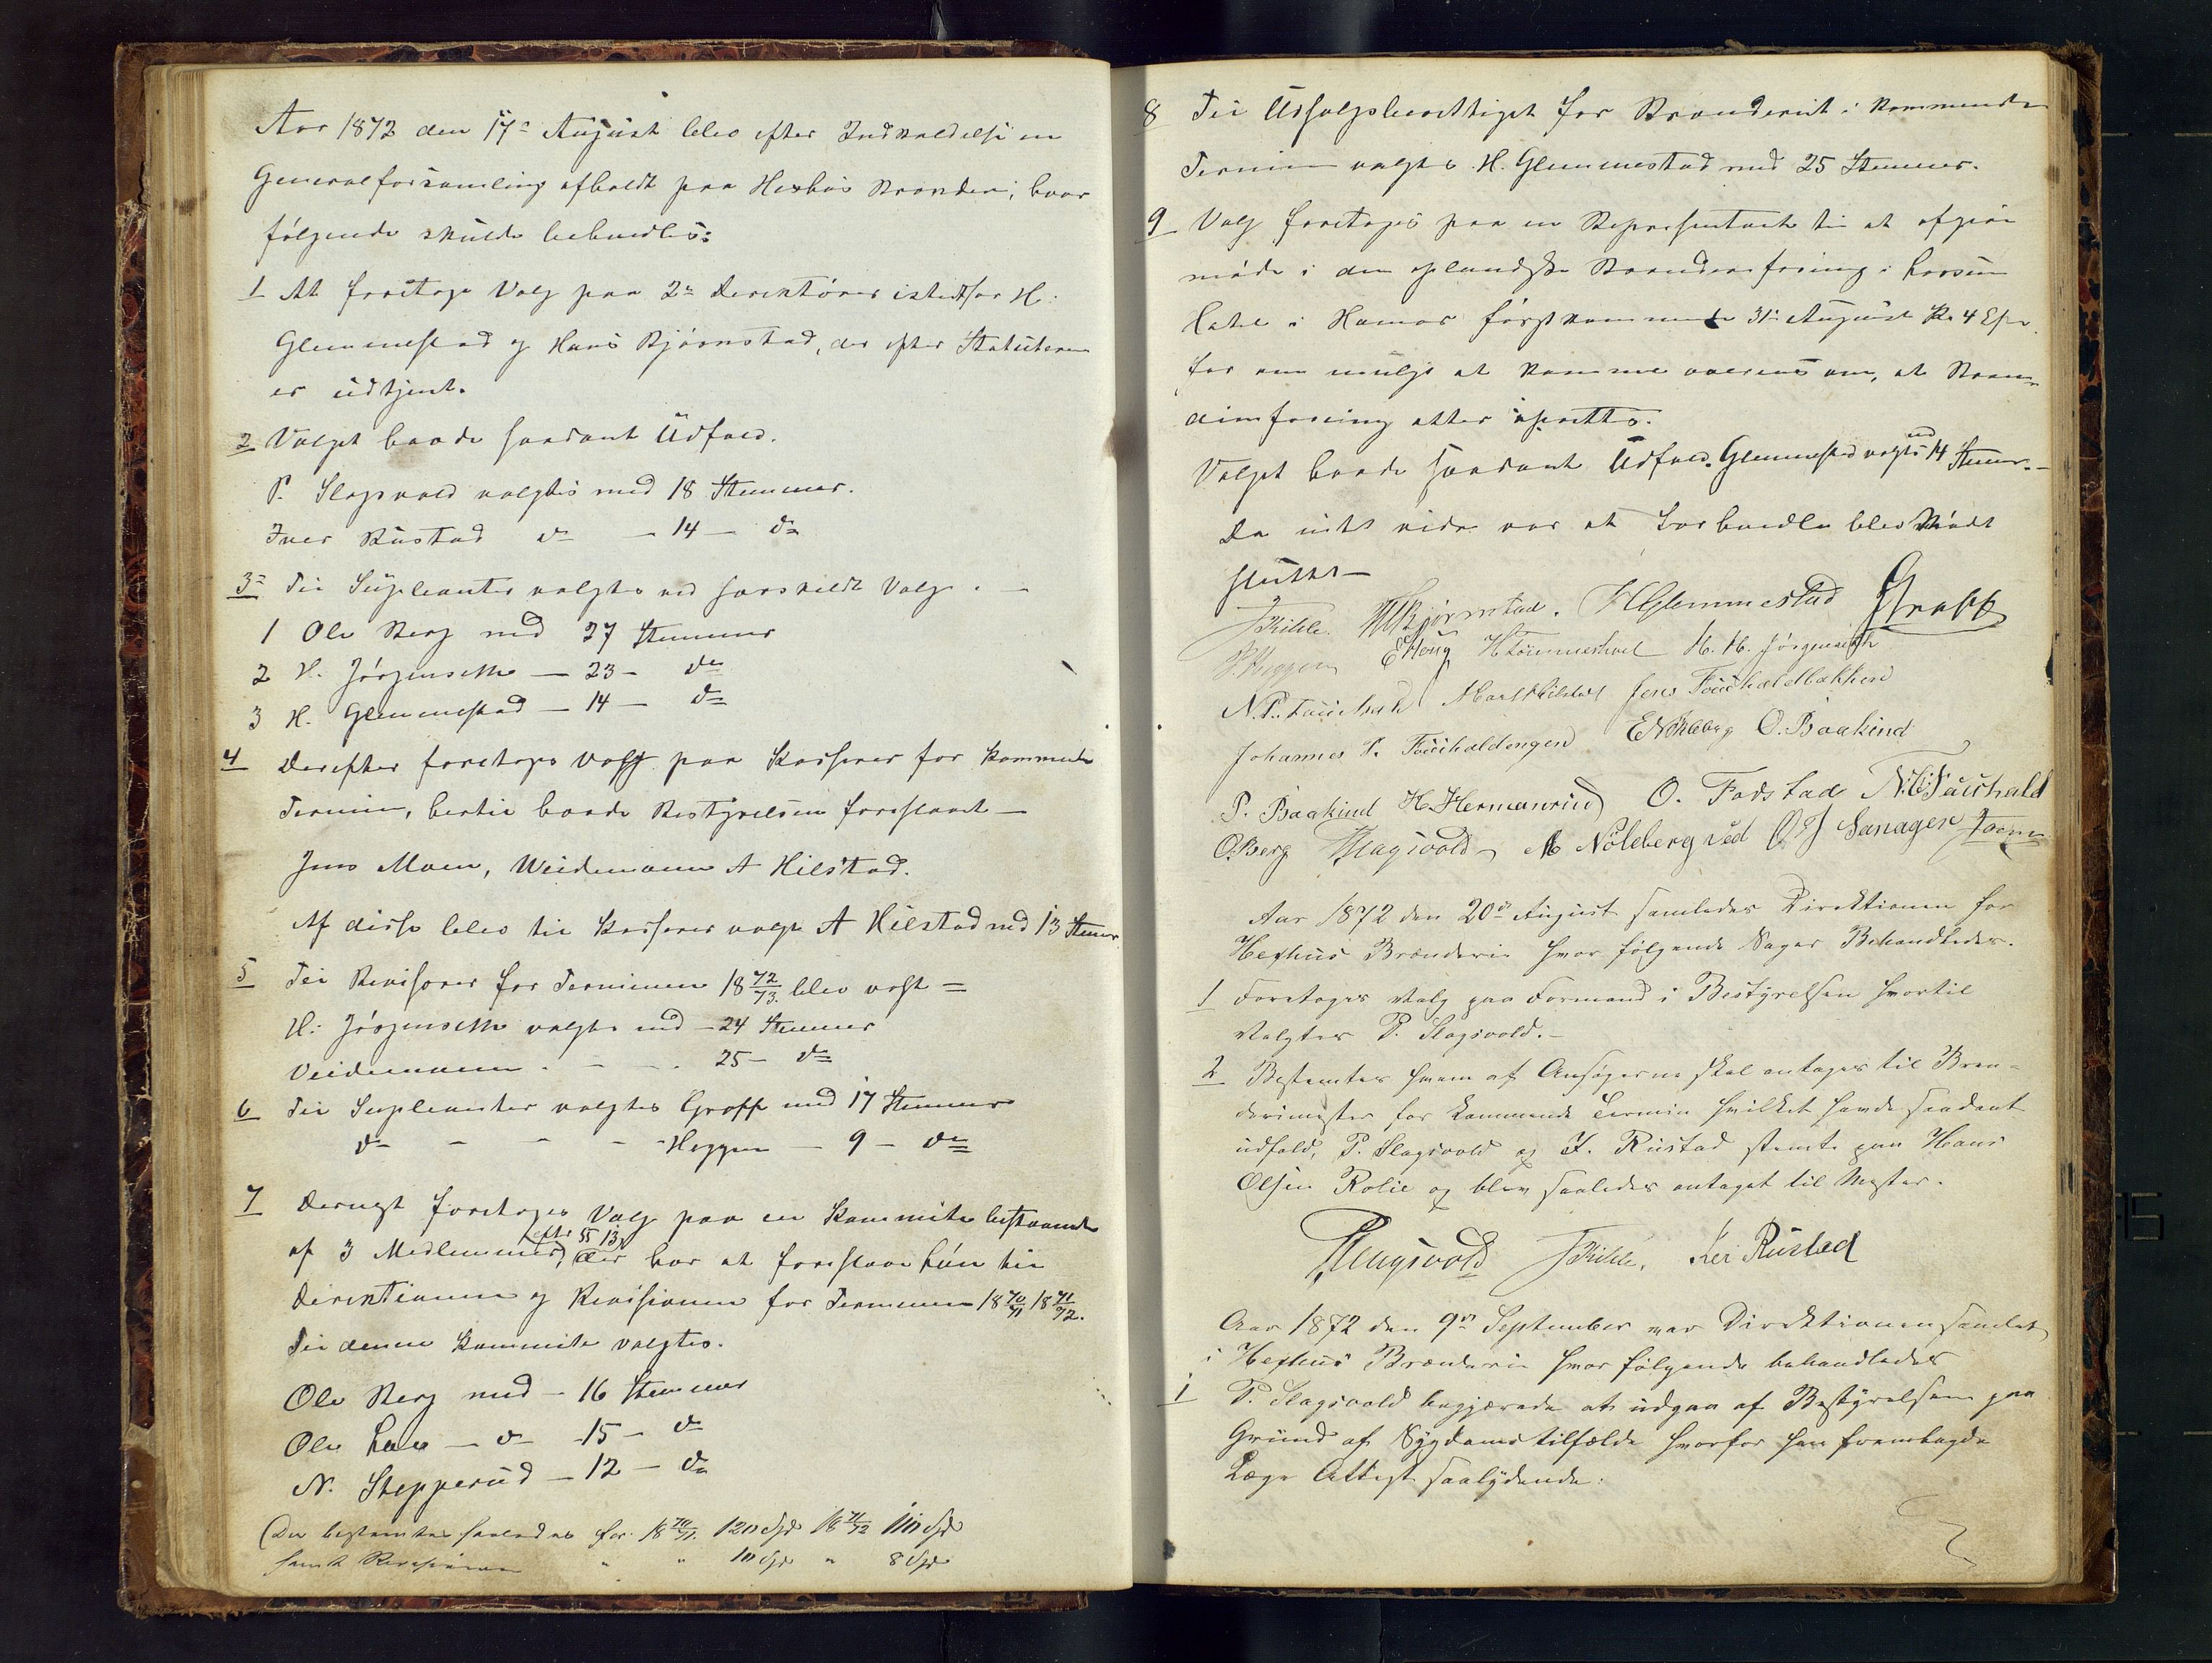 Aar 1872 den 17de August blev efter Indkaldelse en
Generalforsamling afholdt paa Hexhus Brænderi, hvor
følgende skulde behandles:
1 At foretage Valg paa 2de Direktører istedtfor H.
Glemmestad og Hans Bjørnstad, der efter Statuterne
er udtjent.
2 Valget havde saadant Udfald.
P. Slagsvold valgtes med 18 Stemmer.
Iver Rustad do - 14 - do
3 Til Supleanter valgtes ved særskildt Valg. -
1 Ole Berg med 27 Stemmer
2 H. Jørgensen - 23 - do
3 H. Glemmestad - 14 - do
4 Derefter foretages Valg paa Kasserer for kommende
Termin, hertil havde Bestyrelsen foreslaaet -
Jens Moen, Weidemann A Hilstad.
Af disse blev til Kasserer valgt A Hilstad med 13 Stemer
5 Til Revisorer for Terminen 18 72/73. blev valgt =
H: Jørgensen valgtes med - 24 Stemmer
Veidemann . - - . 25 - do
6 Til Supleanter valgtes Gropp med 17 Stemmer
do - - - - Heggen - 9 - do
7 Dernæst foretages Valg paa en Kommite bestaaende
af 3 Medlemmer, (efter §§ 13) der har at foreslaae Løn til
Direktionen og Revisionen for Terminen 18 70/71 18 71/72.
Til denne Kommite valgtes.
Ole Berg med - 16 Stemmer
Ole Lau - do - 15 - do
N. Stepperud - 12 - do
(Der bestemtes saaledes for 18 70/71. 120 Spd 18 71/72 110 Spd
samt Revisionen " " 10 Spd " 8 Spd
8 Til Udsalgsberettiget for Brænderiet i kommende
Termin valgtes H. Glemmestad med 25 Stemmer.
9 Valg foretages paa en Repræsentant til at afgive
møde i den oplandske Brænderiforening i
Hotel i Hamar førstkommende 31te August Kl. 4 Efm.
for om muligt at komme overens om, at Bræn-
deriforening atter oprettes.
Valget havde saadant Udfald. Glemmestad valgtes med 14 Stemer. -
Da intet videre var at forhandle blev Mødet
sluttet -
J Kihle. H Bjørnstad. H Glemmestad Gropp
P Heggen E Houg H Tømmerhoel H. H. Jørgensen
N. P. Fauchald A Hilstad Jens Fauchaldbakken
Johannes P. Fauchaldengen E N Kleberg O. Baakind
P. Baakind H. Hermanrud O. Fodstad N. C. Fauchald
O. Berg P Slagsvold A Nøkleberg ved O J Sanager
Aar 1872 den 20de August samledes Direktionen for
Hexhus Brænderi hvor følgende Sager Behandledes.
1 Foretages Valg paa Formand i Bestyrelsen hvortil
Valgtes P. Slagsvold. -
2 Bestemtes hvem af Ansøgerne skal antages til Bren-
derimester for kommende Termin hvilket havde saadant
udfald, P. Slagsvold og I. Rustad stemte paa Hans
Olsen Rolie og blev saaledes antaget til Mester.
P Slagsvold J Kihle. Iver Rustad
Aar 1872 den 9de September var Direktionen samlet
i Hexhus Brænderi hvor følgende behandledes
1 P. Slagsvold begjærede at udgaa af Bestyrelsen paa
Grund af Sygdomstilfælde hvorfor han frembragde
Læge Attest saalydende: